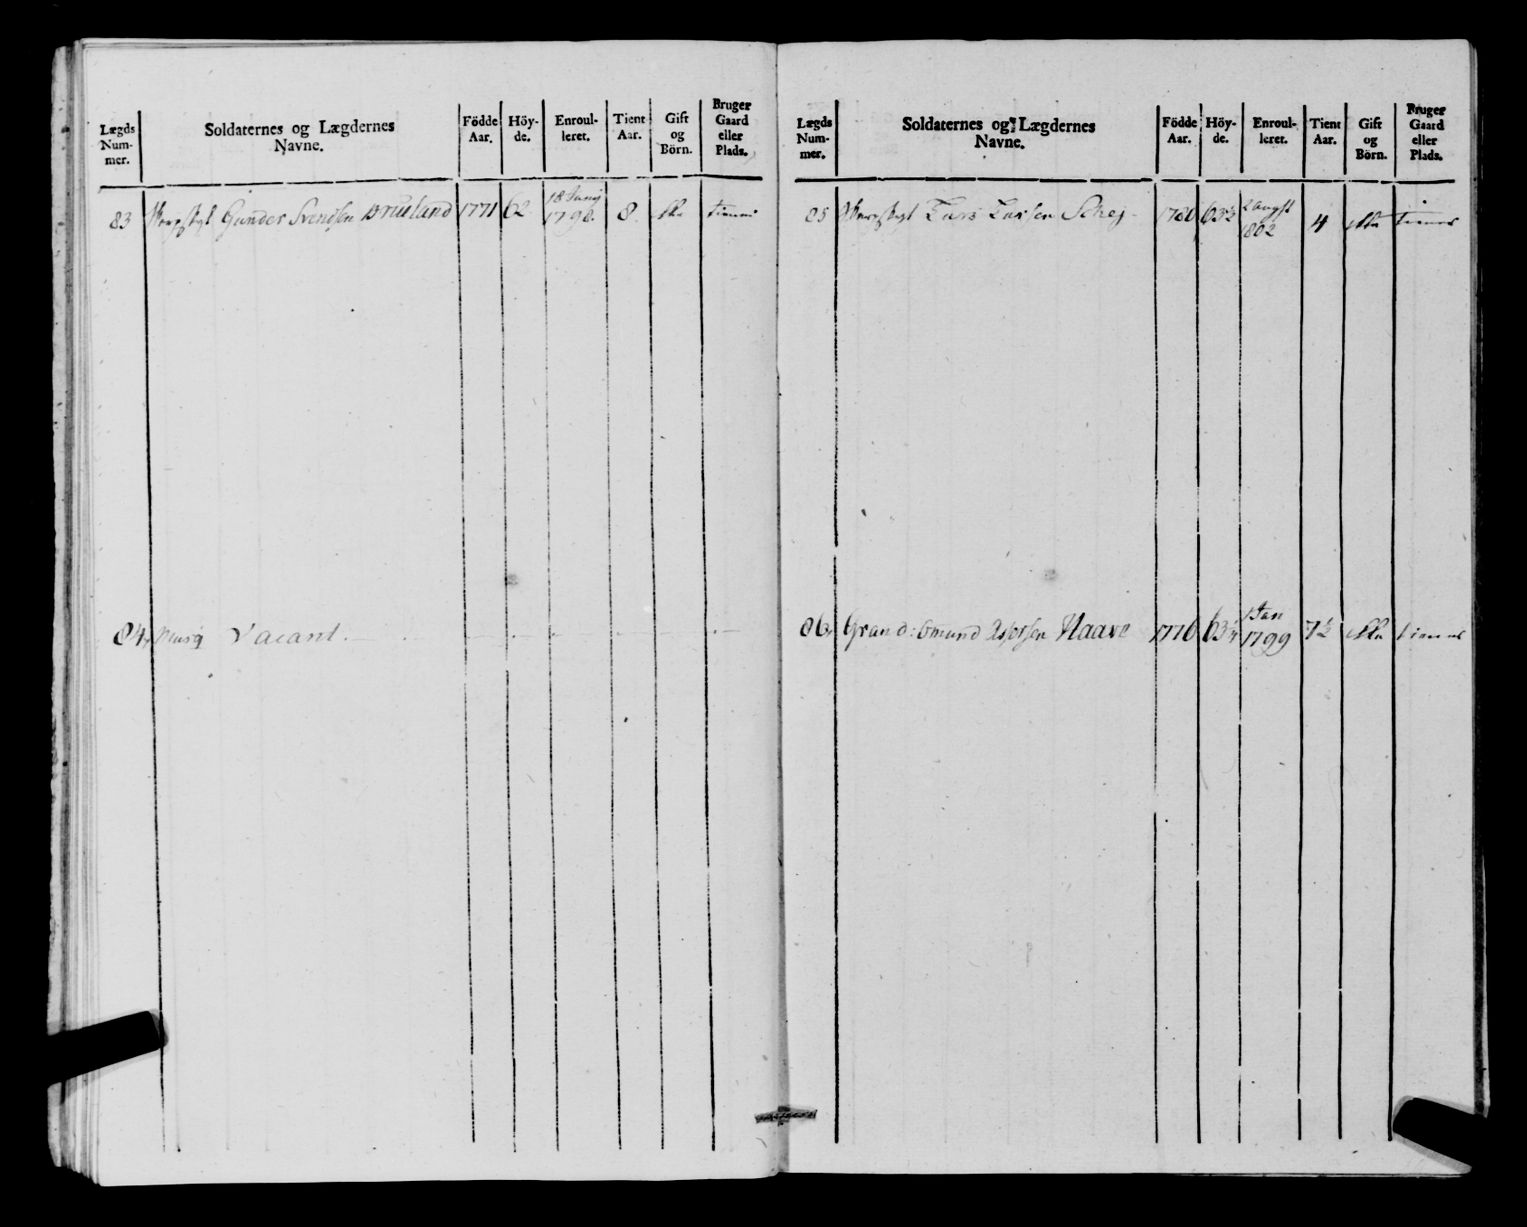 Lægds Num- mer.
Soldaternes og Lægdernes Navne.
Födde Aar.
Höy- de.
Enroul- leret.
Tient Aar.
Gift og Börn.
Bruger Gaard eller Plads.
83 Gunder Svendsen 1771 62 18 Junij 1798. 8. tiener
84, Vacant.
Lægds Num- mer.
Soldaternes og Lægdernes Navne.
Födde Aar.
Höy- de.
Enroul- leret.
Tient Aar.
Gift og Börn.
Bruger Gaard eller Plads.
85 Lars Larsen Schej 1780 63½ 2 Augst 1802 4 tiener
86, Grand: Omund Haave 1776 1 Jan 1799 7½ tiener